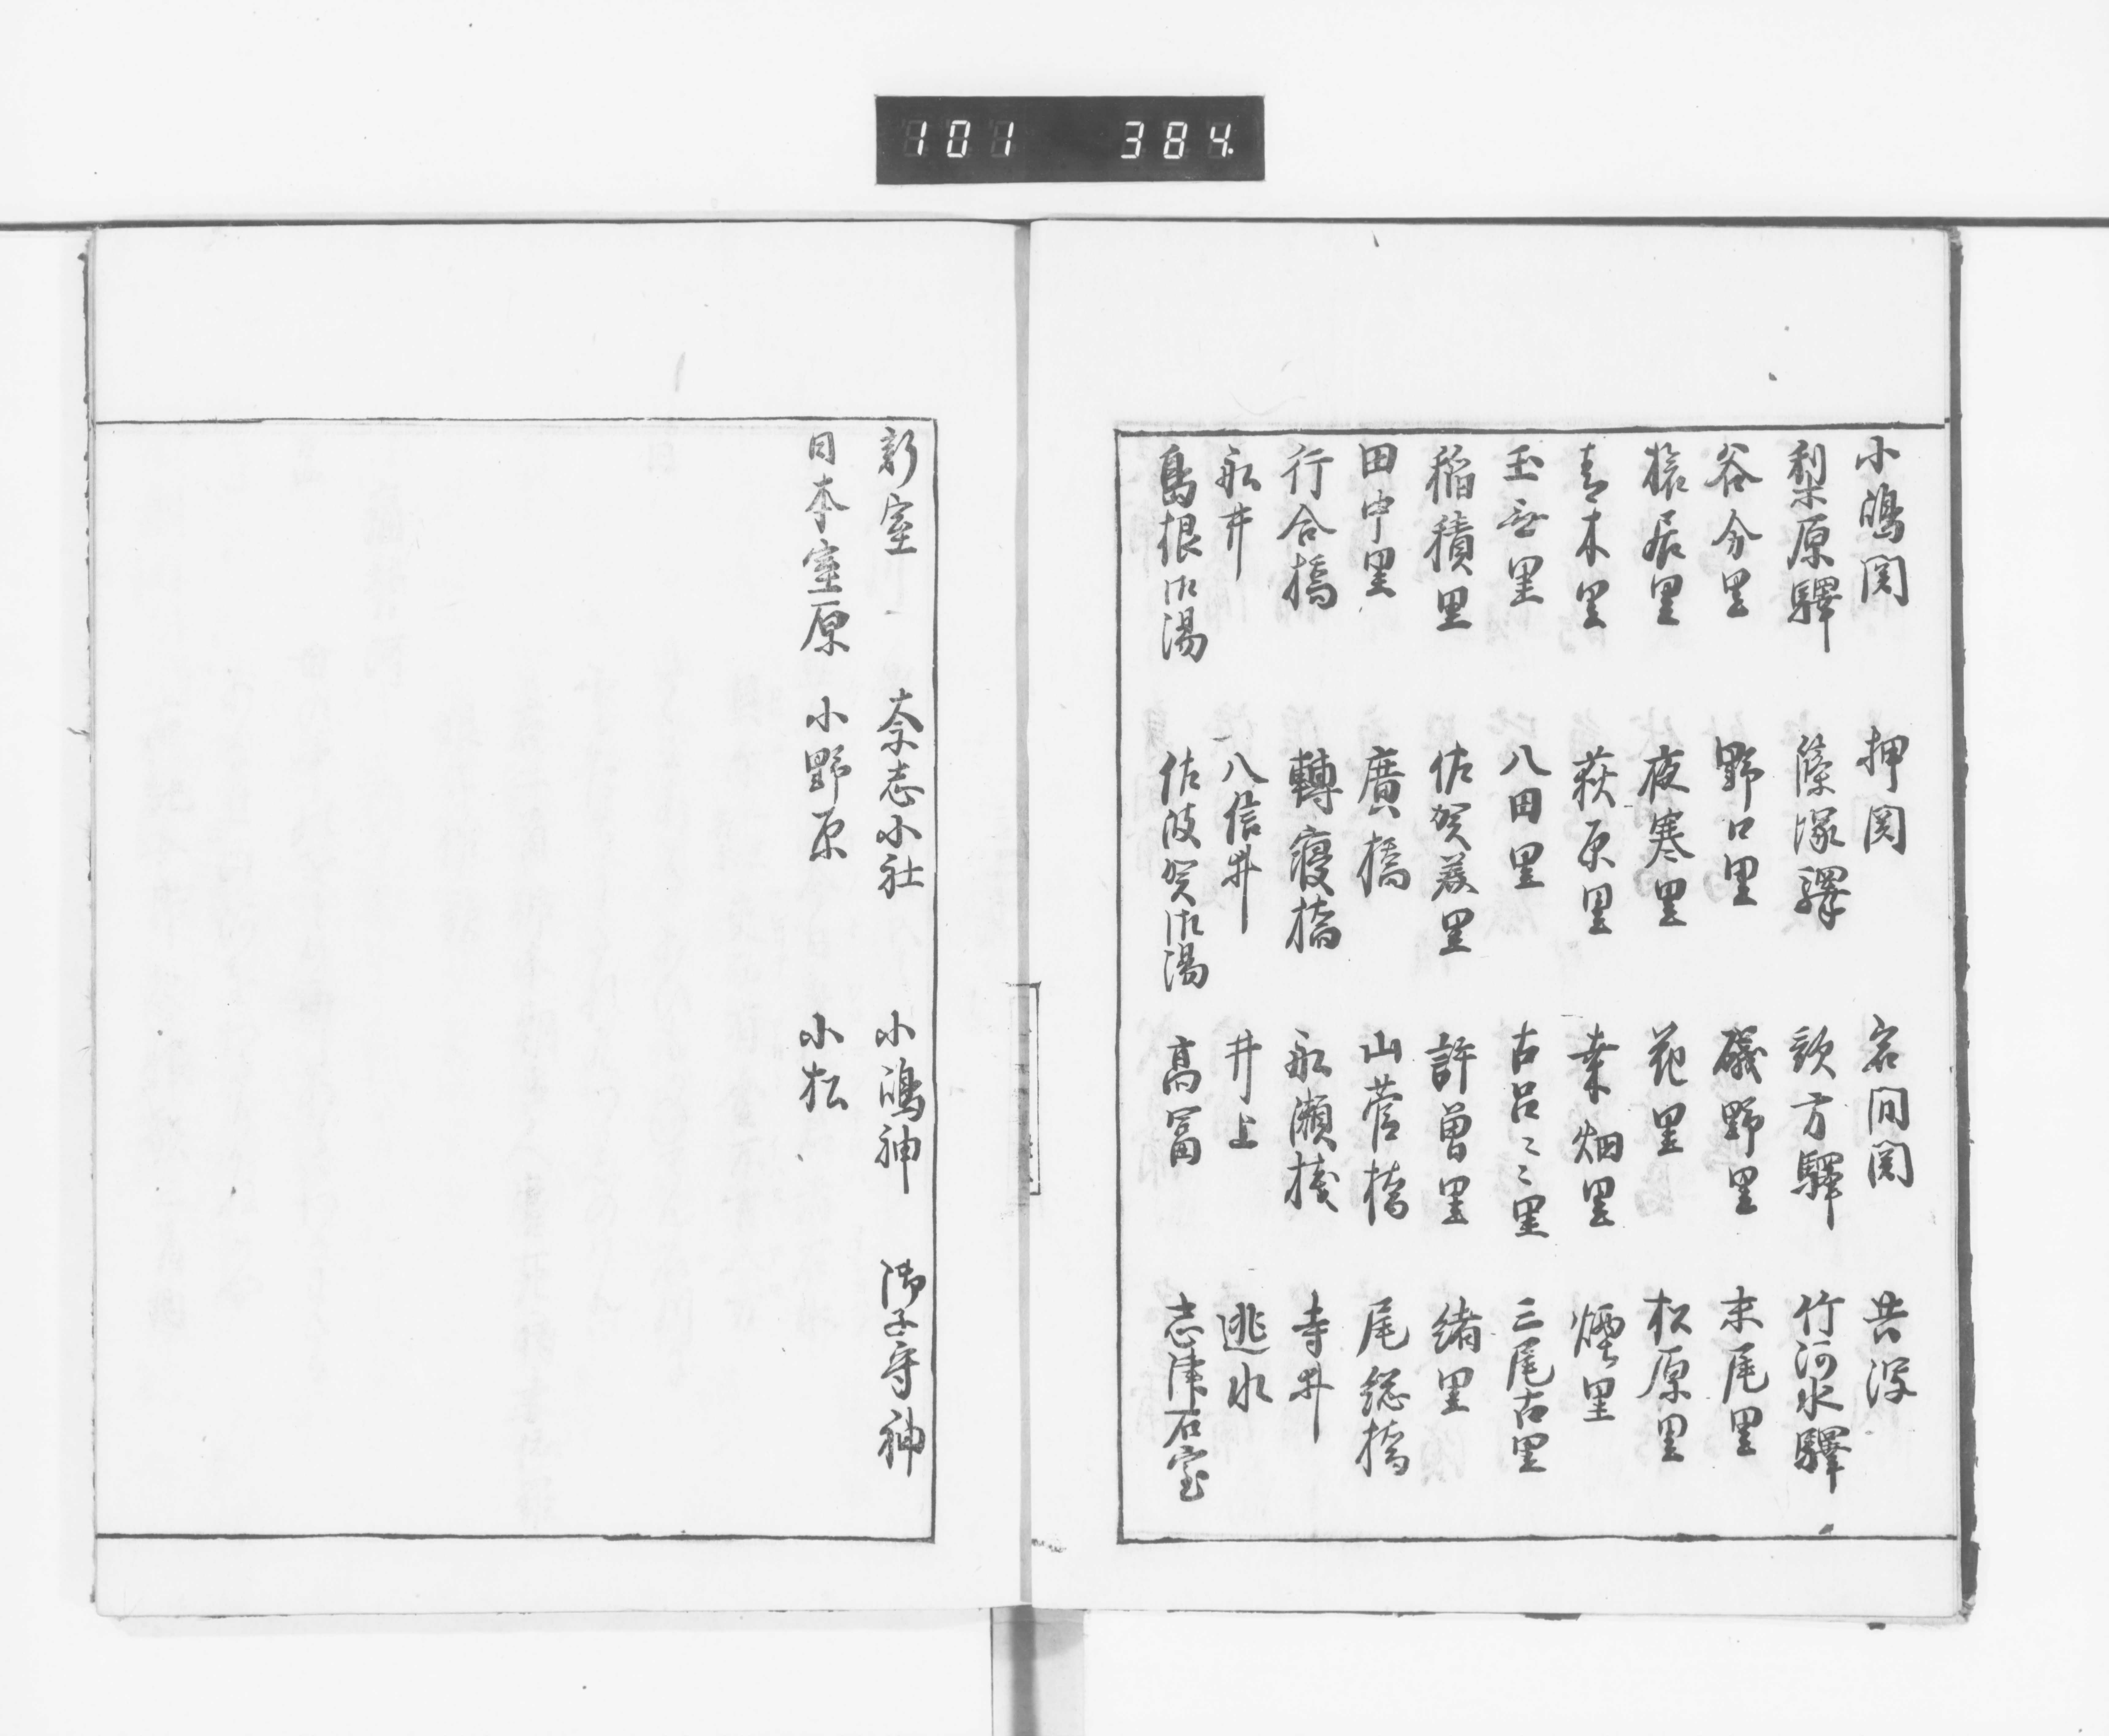 101 384
小嶋関 押関 岩間関 共浮
梨原驛 篠塚驛 歌方驛 竹河水驛
谷分里 野口里 礒野里 末尾里
猿居里 夜寒里 花里 松原里
青木里 萩原里 桒畑里 煙里
玉無里 八田里 古呂〻〻里 三尾古里
稲積里 佐賀義里 許曽里 緒里
田中里 廣橋 山菅橋 尾総橋
行合橋 轉寝橋 舩瀬棧 寺井
舩井 八信井 井上 逃水
島根御湯 佐波賀御湯 高冨 志津石室
新室 奈志小社 小嶋神 御子守神
日本室原 小野原 小松